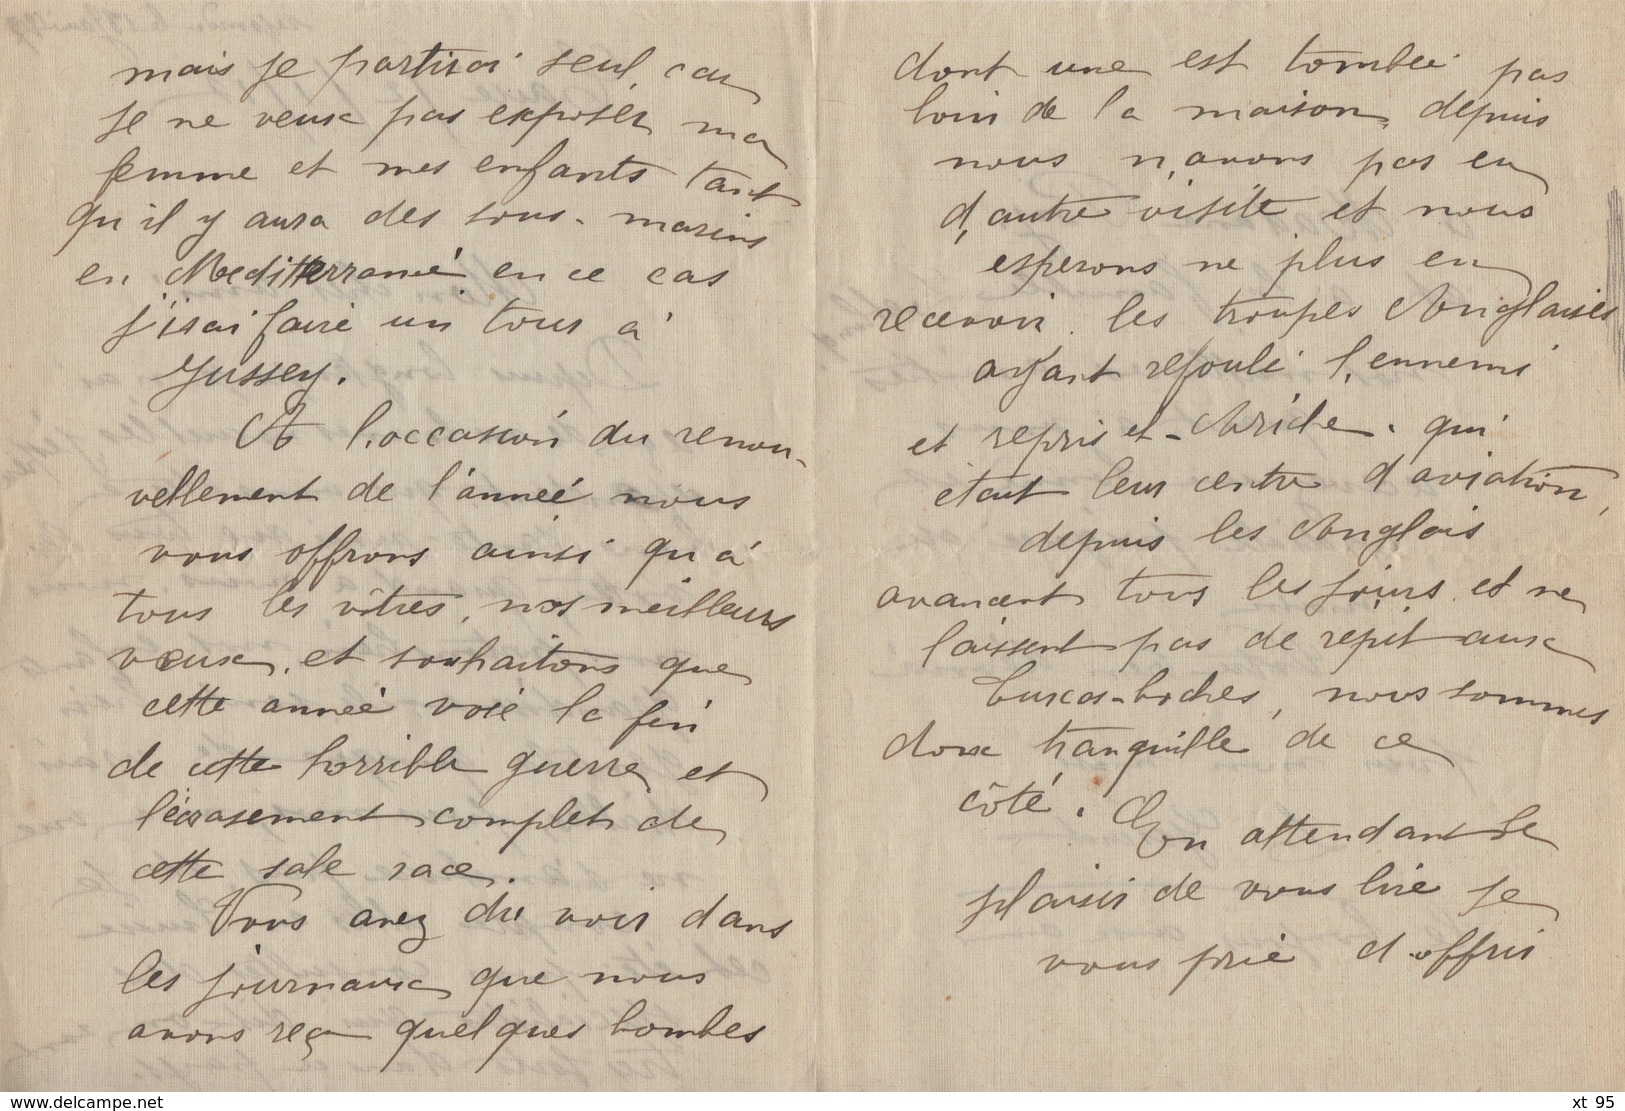 mais je partirai seul, car
je ne veux pas exposer ma
femme et mes enfants tant
qu'il y aura des sous-marins
en Mediterranneé en ce cas
j'irai faire un tour à
Jussey.
A l'occasion du renou-
vellement de l'anneé nous
vous offrons ainsi qu'à
tous les vôtres, nos meilleurs
voeux, et souhaitons que
cette anneé voie la fin
de cette horrible guerre et
l'écrasement complet de
cette sale race.
Vous avez dû voir dans
les journaux que nous
avons reçu quelques bombes
dont une est tombeé pas
loin de la maison, depuis
nous n'avons pas eu
d'autre visite et nous
esperons ne plus en
recevoir. les troupes Anglaises
ayant refoulé l'ennemi
et repris el-Ariche. qui
était leur centre d'aviation,
depuis les Anglais
avancent tous les jours et ne
laissent pas de répit aux
turcos-boches, nous sommes
donc tranquille de ce
côté. En attendant le
plaisir de vous lire je
vous prie d'offrir
www.delcampe.net
xt 95